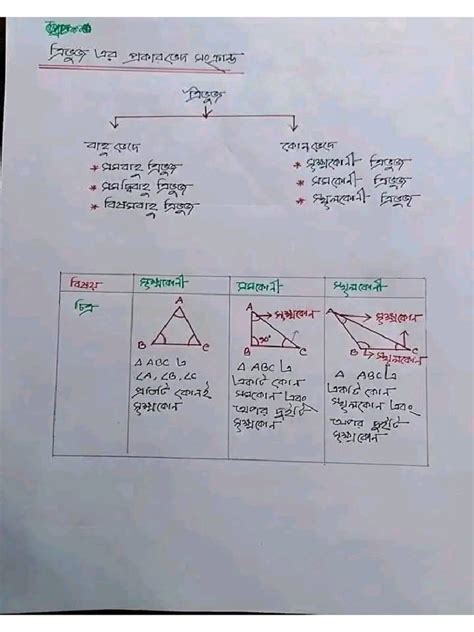 ত্রিভুজ এর প্রকারভেদ সংক্রান্ত
ত্রিভুজ
বাহুভেদে
* সমবাহু ত্রিভুজ
* সমদ্বিবাহু ত্রিভুজ
* বিষমবাহু ত্রিভুজ
কোনভেদে
* সূক্ষ্মকোনী ত্রিভুজ
* সমকোনী ত্রিভুজ
* স্থূলকোনী ত্রিভুজ
বিষয় সূক্ষ্মকোনী সমকোনী স্থূলকোনী
চিত্র
A
B C
Δ ABC এ
∠A, ∠B, ∠C
প্রতিটি কোনই
সূক্ষ্মকোন
A সূক্ষ্মকোন
90°
B C
Δ ABC এ
একটি কোন
সমকোন এবং
অপর দুইটি
সূক্ষ্মকোন
A সূক্ষ্মকোন
B C
স্থূলকোন
Δ ABC এ
একটি কোন
স্থূলকোন এবং
অপর দুইটি
সূক্ষ্মকোন